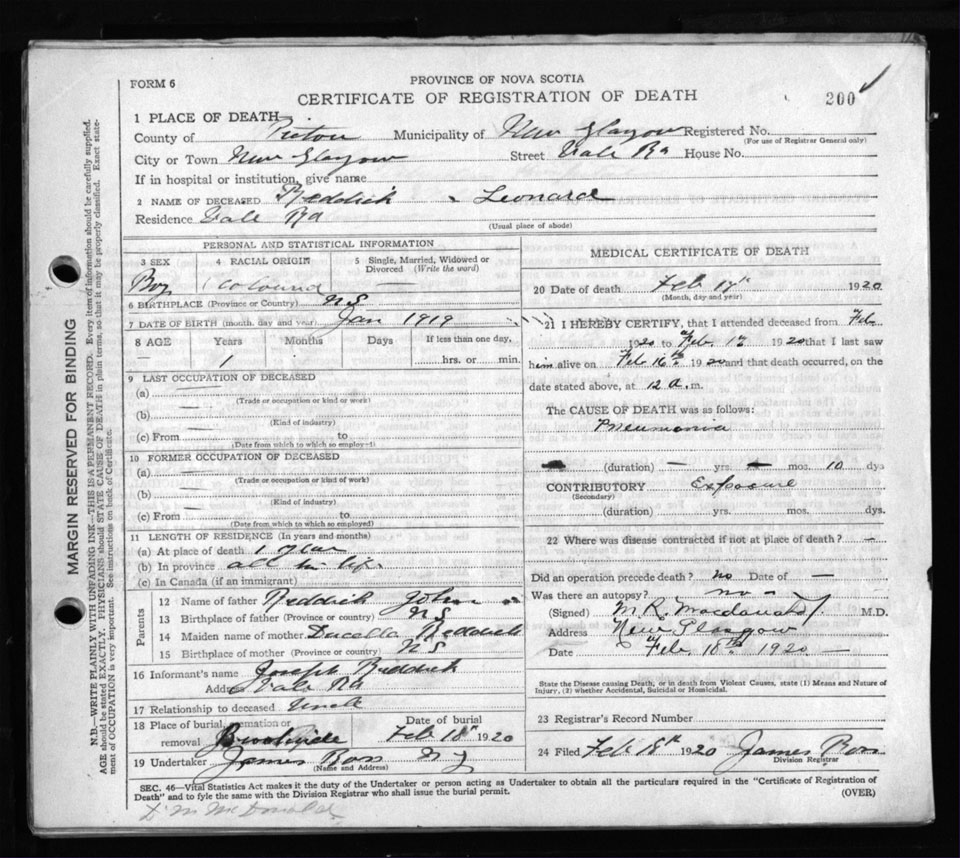 FORM 6
PROVINCE OF NOVA SCOTIA
CERTIFICATE OF REGISTRATION OF DEATH
200
1 PLACE OF DEATH
County of Pictou Municipality of New Glasgow Registered No.
(For use of Registrar General only)
City or Town New Glasgow Street Vale Rd House No.
If in hospital or institution, give name
2 NAME OF DECEASED Reddick Leonard
Residence Vale Rd
(Usual place of abode)
PERSONAL AND STATISTICAL INFORMATION
3 SEX 4 RACIAL ORIGIN 5 Single, Married, Widowed or Divorced (Write the word)
Boy Coloured —
6 BIRTHPLACE (Province or Country) N S
7 DATE OF BIRTH (month, day and year) Jan 1919
8 AGE Years Months Days If less than one day,
— 1 hrs. or min.
9 LAST OCCUPATION OF DECEASED
(a) —
(Trade or occupation or kind of work)
(b) —
(Kind of industry)
(c) From — to
(Date from which to which so employed)
10 FORMER OCCUPATION OF DECEASED
(a) —
(Trade or occupation or kind of work)
(b) —
(Kind of industry)
(c) From — to
(Date from which to which so employed)
11 LENGTH OF RESIDENCE (In years and months)
(a) At place of death 1 year
(b) In province all his life
(c) In Canada (if an immigrant)
Parents
12 Name of father Reddick John
13 Birthplace of father (Province or country) N S
14 Maiden name of mother Reddick
15 Birthplace of mother (Province or country) N S
16 Informant's name Joseph Reddick
Address Vale Rd
17 Relationship to deceased Uncle
18 Place of burial, cremation or removal Brookside Date of burial Feb 18th 1920
19 Undertaker James Ross N G
(Name and Address)
MEDICAL CERTIFICATE OF DEATH
20 Date of death Feb 17th 1920
(Month, day and year)
21 I HEREBY CERTIFY, that I attended deceased from Feb
1920 to Feb. 1920 that I last saw
him alive on Feb 16th 1920 and that death occurred, on the
date stated above, at 12 a. m.
The CAUSE OF DEATH was as follows:
Pneumonia
(duration) — yrs. — mos. 10 dys
CONTRIBUTORY Exposure
(Secondary)
(duration) yrs. mos. dys.
22 Where was disease contracted if not at place of death? —
Did an operation precede death? no Date of —
Was there an autopsy? no —
(Signed) M. R. Macdonald M.D.
Address New Glasgow
Date Feb. 18th 1920 —
State the Disease causing Death, or in death from Violent Causes, state (1) Means and Nature of
Injury, (2) whether Accidental, Suicidal or Homicidal.
23 Registrar's Record Number
24 Filed Feb 18th 1920 James Ross
Division Registrar
SEC. 46—Vital Statistics Act makes it the duty of the Undertaker or person acting as Undertaker to obtain all the particulars required in the "Certificate of Registration of
Death" and to fyle the same with the Division Registrar who shall issue the burial permit. (OVER)
D. M. McDonald
MARGIN RESERVED FOR BINDING
N.B.—WRITE PLAINLY WITH UNFADING INK—THIS IS A PERMANENT RECORD. Every item of information should be carefully supplied.
AGE should be stated EXACTLY. PHYSICIANS should STATE CAUSE OF DEATH in plain terms, so that it may be properly classified. Exact state-
ment of OCCUPATION is very important. See instructions on back of Certificate.